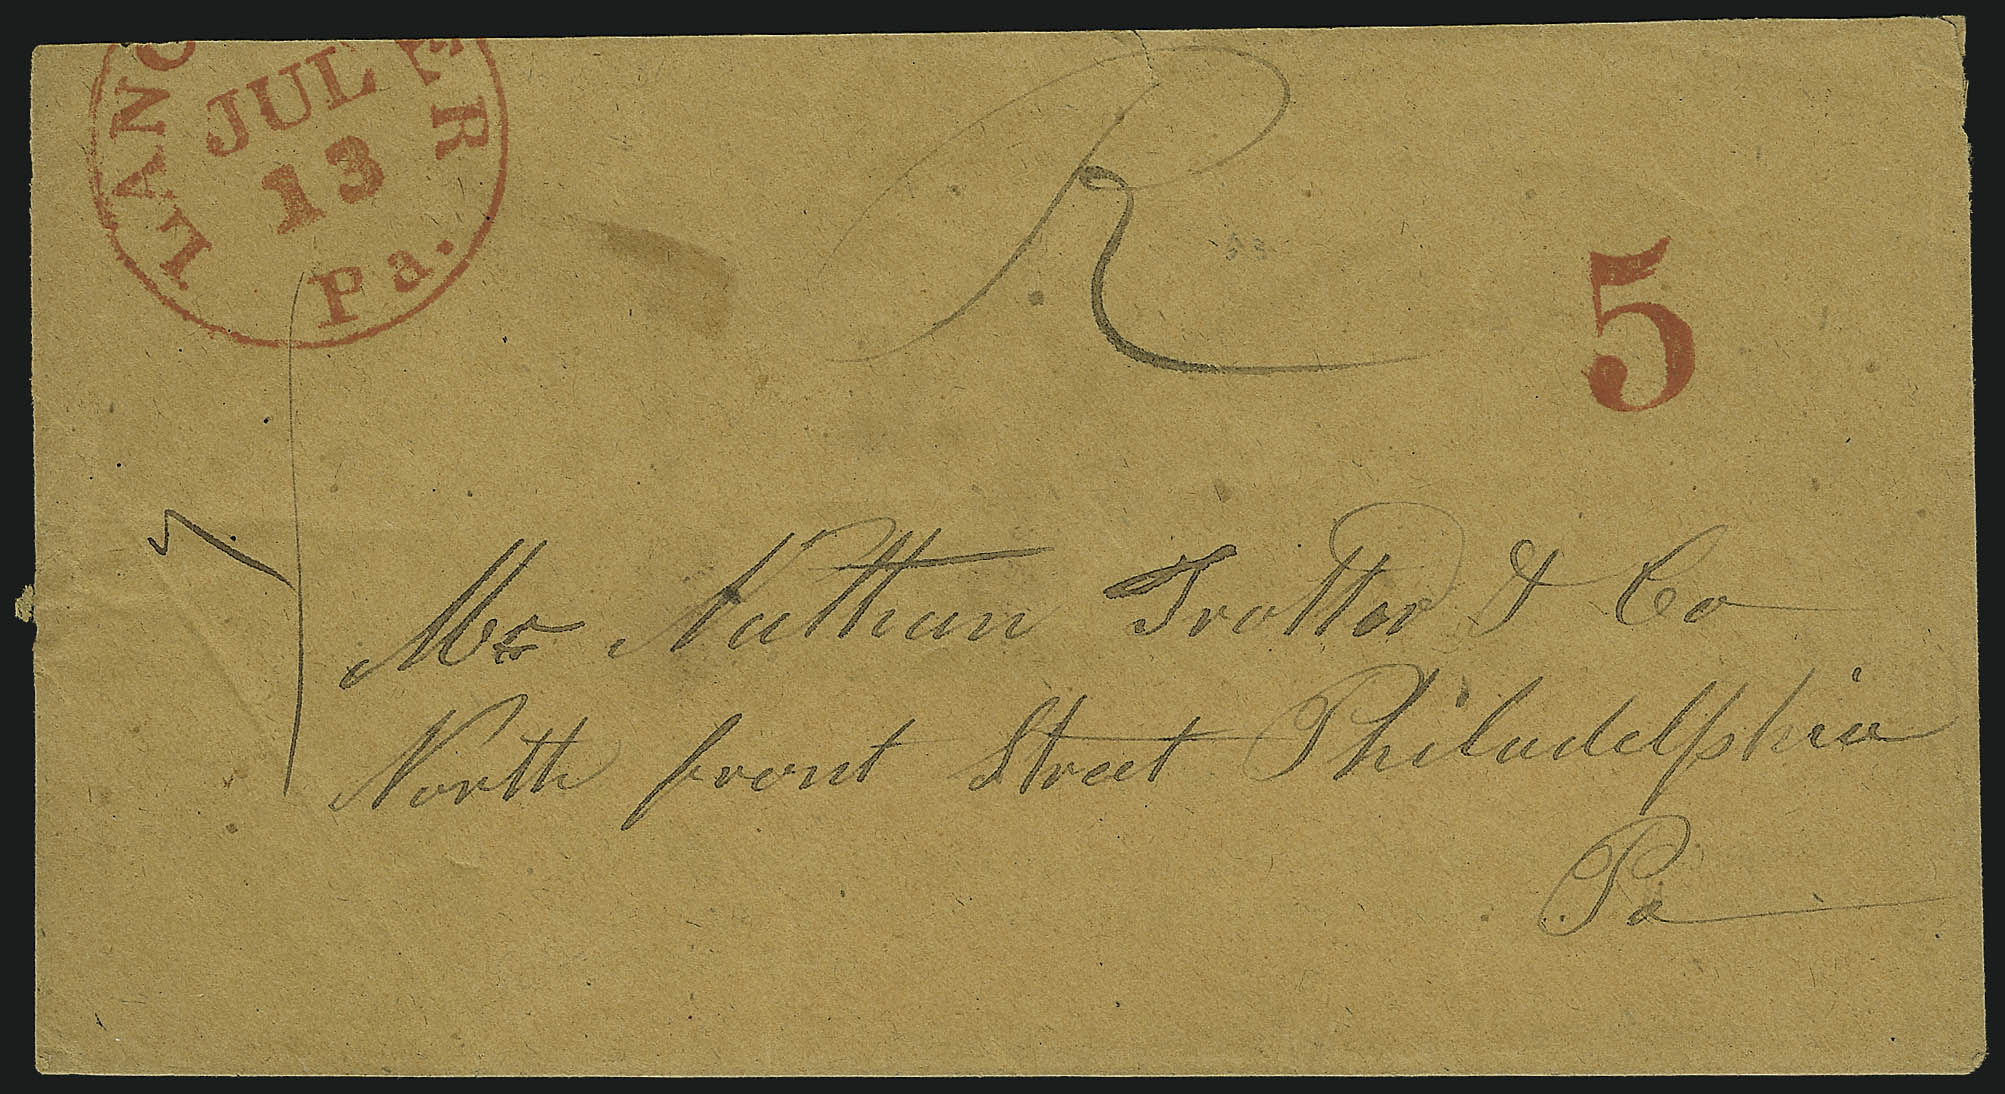 LANC ER
JUL
13
Pa.
R
5
7
Mr Nathan Trotter & Co
North front Street Philadelphia
Pa